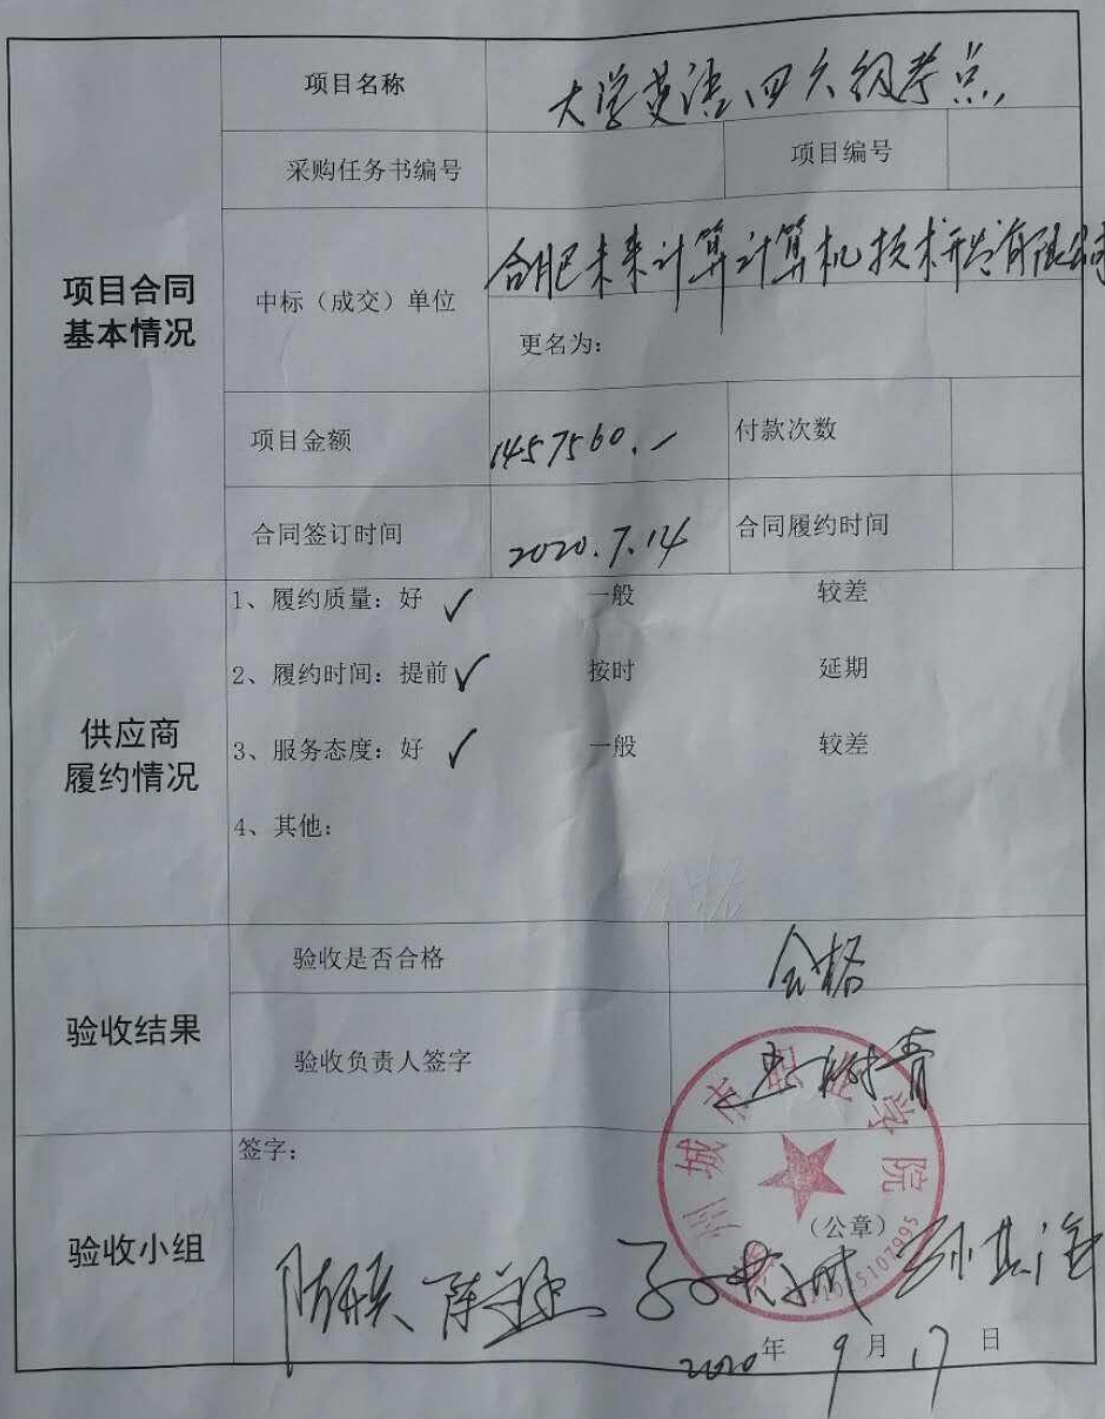 项目合同
基本情况
项目名称
大学英语四六级考点
采购任务书编号
项目编号
中标（成交）单位
合肥未来计算计算机技术开发有限公司
更名为：
项目金额
1457560.-
付款次数
合同签订时间
2020.7.14
合同履约时间
供应商
履约情况
1、履约质量：好 ✓ 一般 较差
2、履约时间：提前 ✓ 按时 延期
3、服务态度：好 ✓ 一般 较差
4、其他：
验收结果
验收是否合格
合格
验收负责人签字
树青
验收小组
签字：
城市 学院
（公章）
2020年 9月 17日